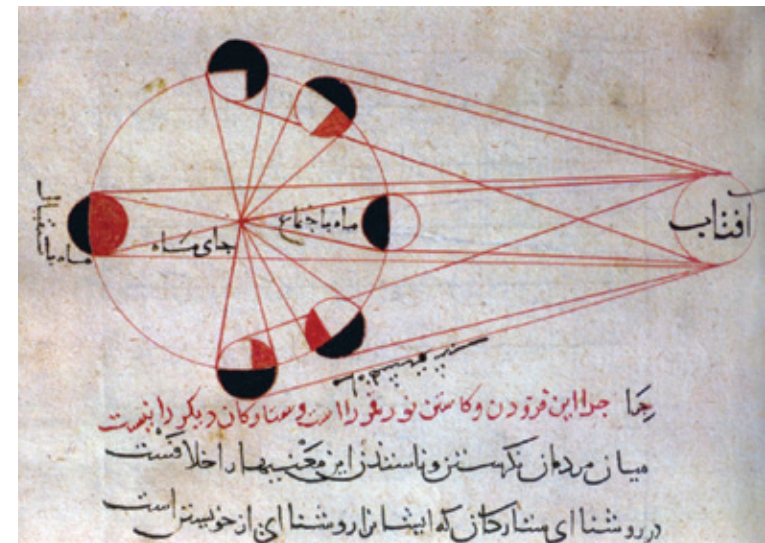 افتاب
ماه باجتماع
جای ماه
ماه باستقبال
چرا این فزودن وکاستن نور قمر را است وستارکان دیکر را نیست
میان مردمان نکرستن و این معنیها را خلافست
در روشنا ای ستارکان که ایشانرا روشنا ای از خویشتن است